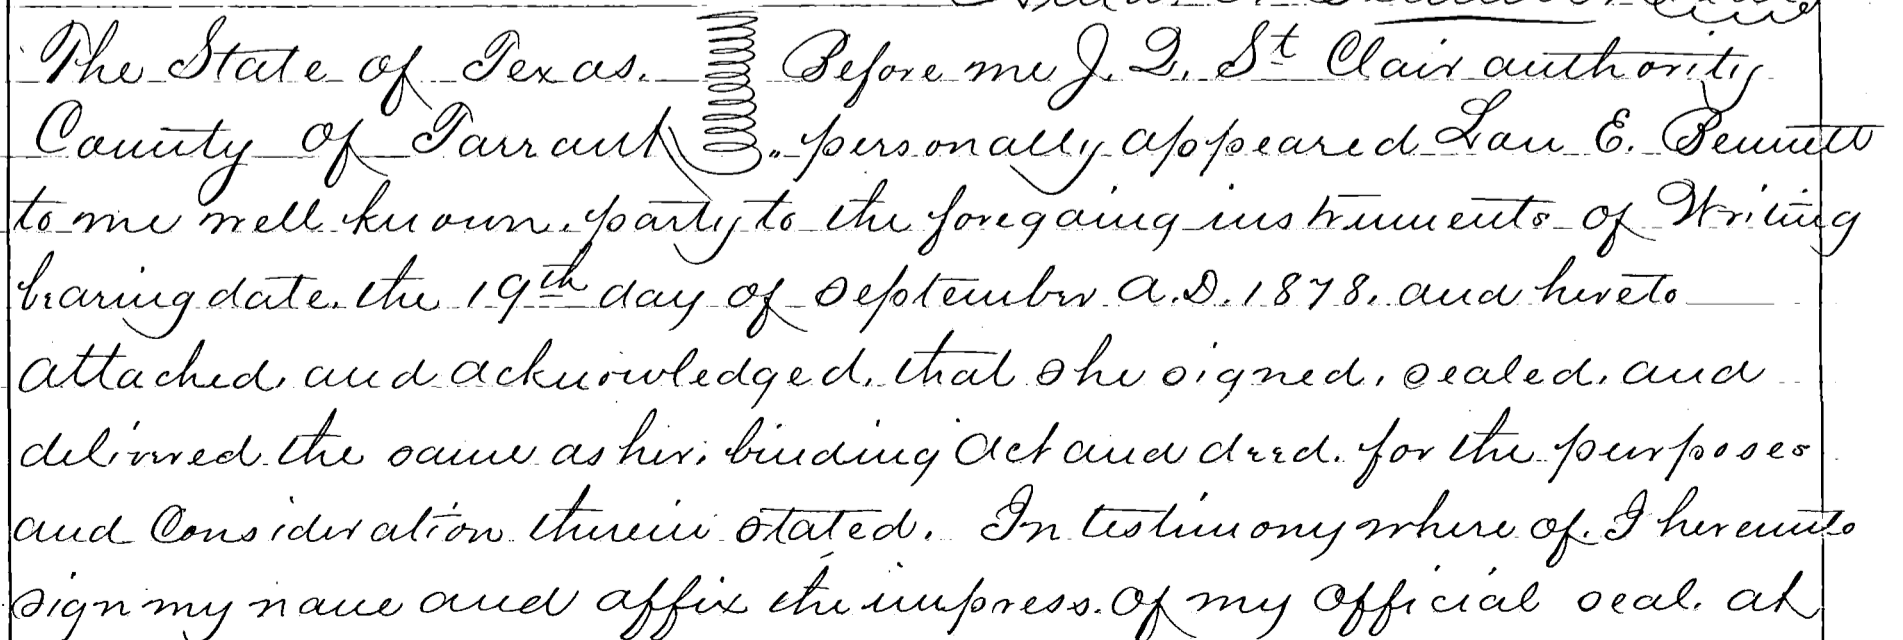 The State of Texas. Before me J. Q. St Clair authority
County of Tarrant personally appeared Lou E. Bennett
to me well known. party to the foregoing instruments of Writing
bearing date. the 19th day of September A.D. 1878. and hereto
attached. and acknowledged. that she signed. sealed. and
delivered the same as her. binding Act and deed. for the purposes
and Consideration therein stated. In testimony where of. I hereunto
sign my name and affix the impress. of my official seal. at